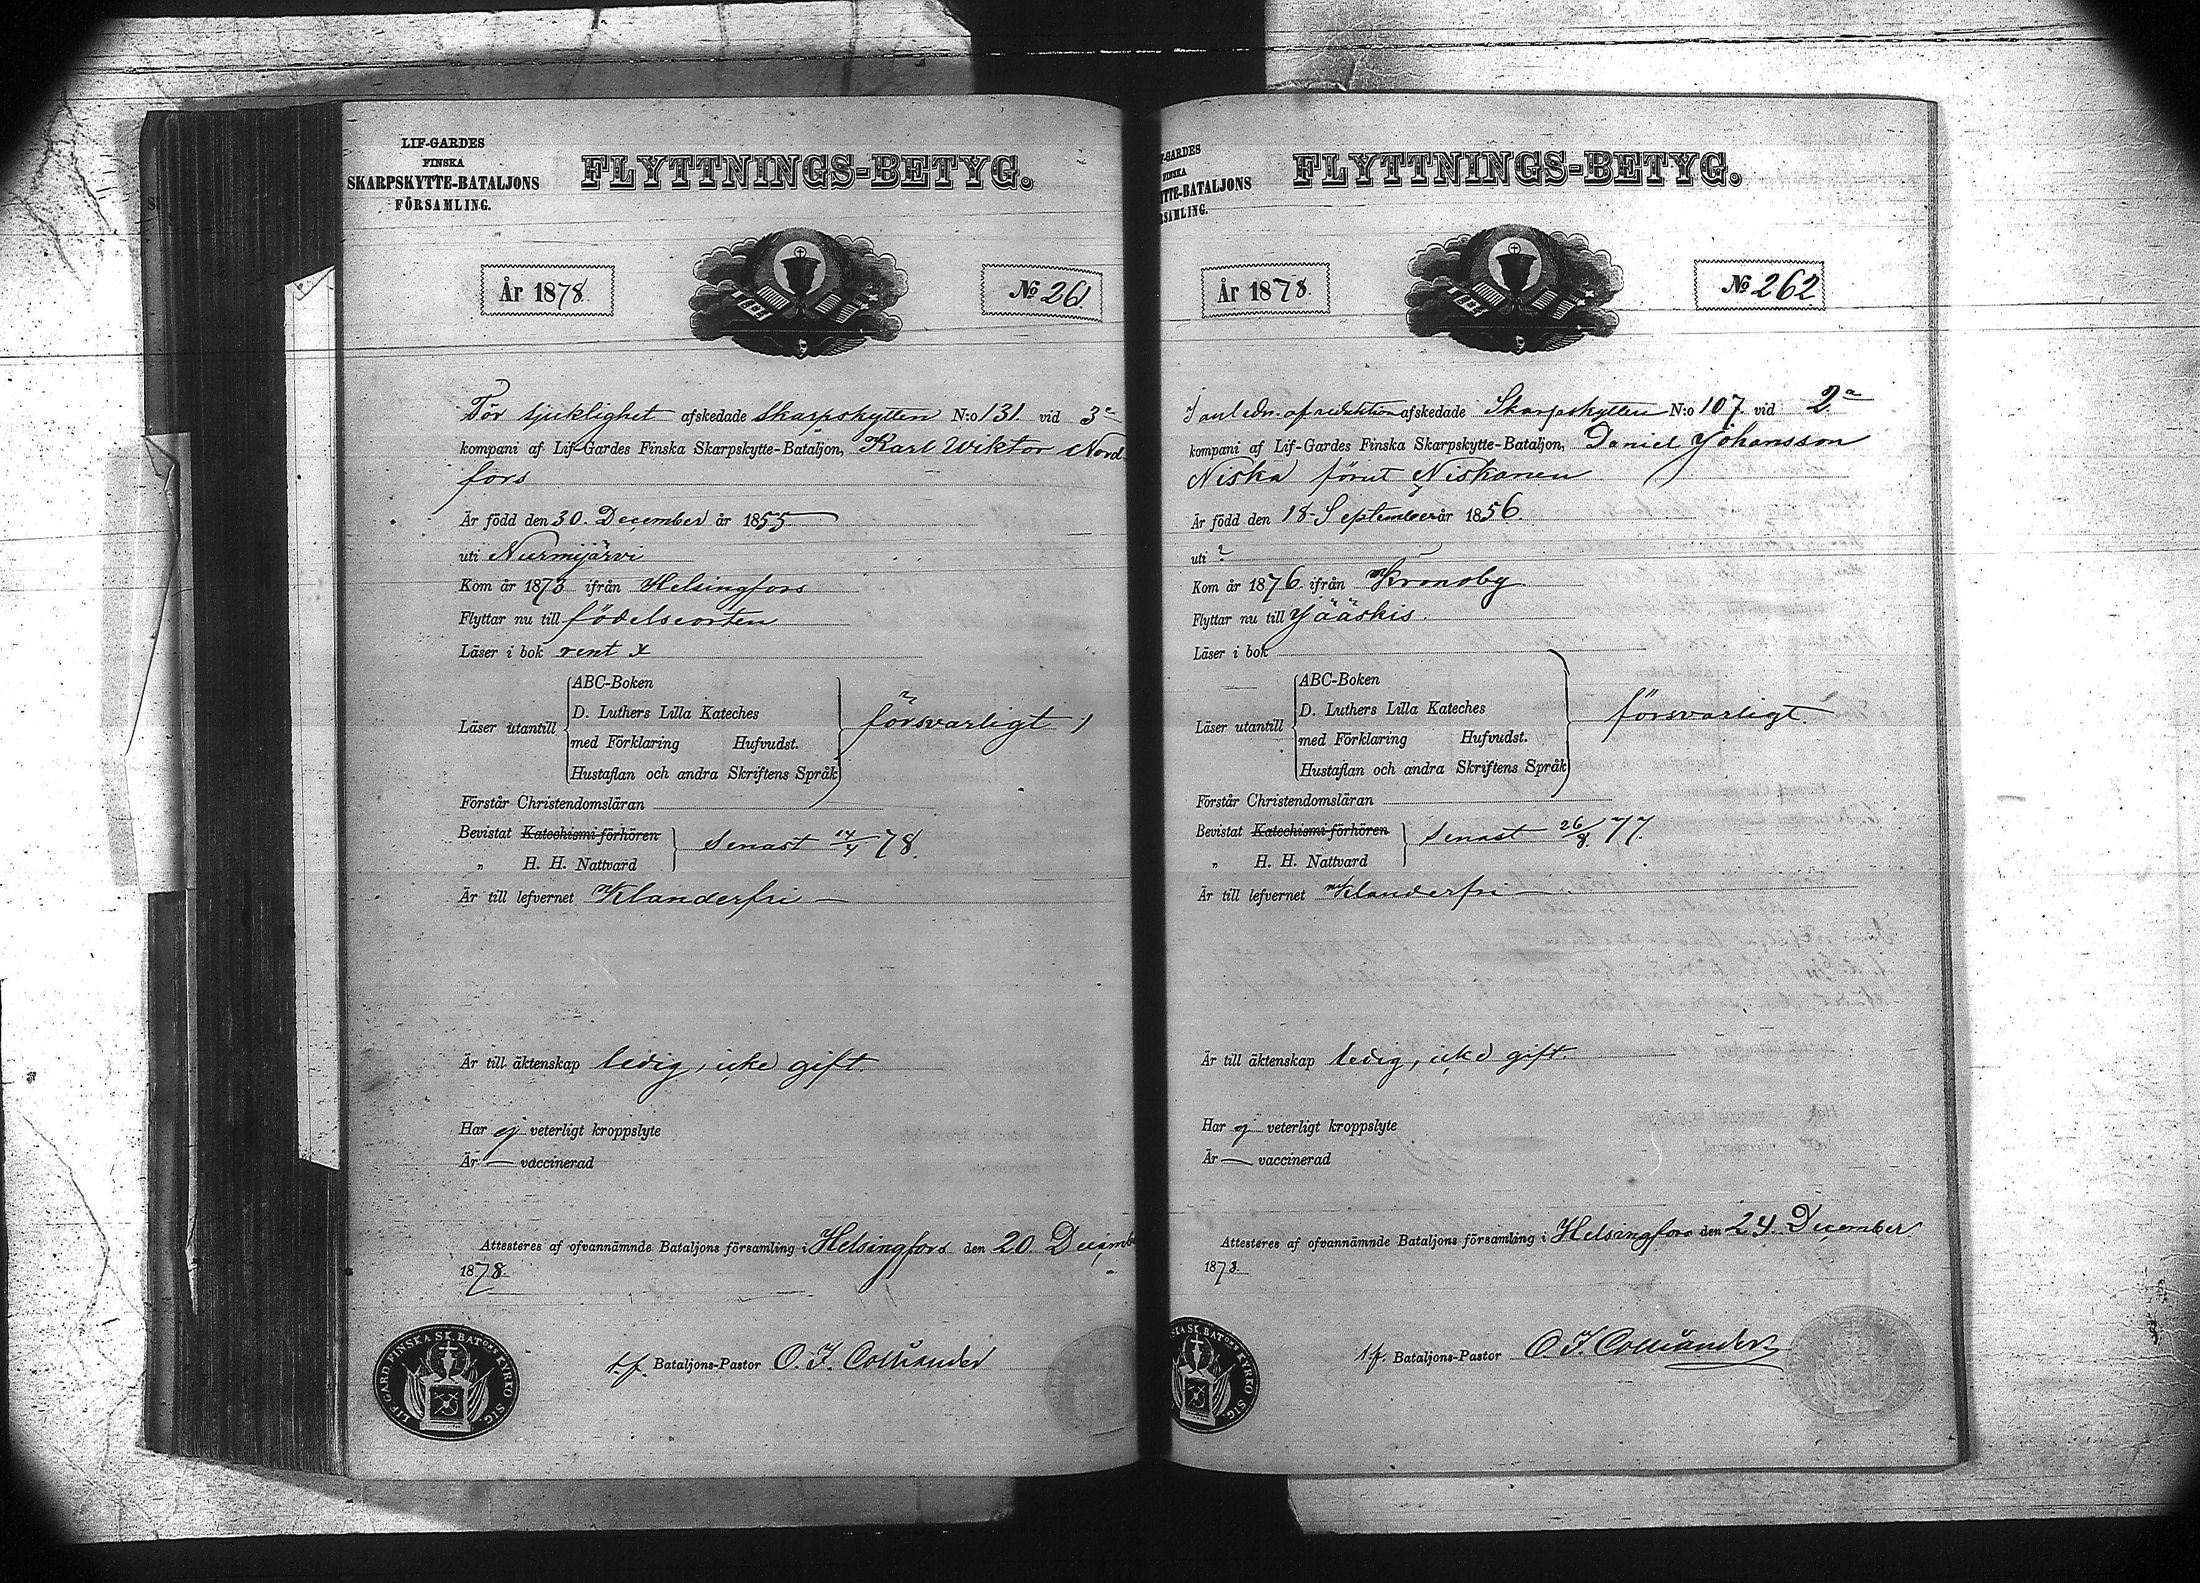 LIF-GARDES
FINSKA
SKARPSKYTTE-BATALJONS
FÖRSAMLING.
FLYTTNINGS-BETYG.
År 1878.
№ 261
För sjuklighet afskedade skarpskytten N:o 131. vid 3e
kompani af Lif-Gardes Finska Skarpskytte-Bataljon, Karl Wiktor Nord-
fors
Är född den 30. December år 1855
uti Nurmijärvi
Kom år 1873 ifrån Helsingfors
Flyttar nu till födelseorten
Läser i bok rent x
ABC-Boken
D. Luthers Lilla Kateches
Läser utantill försvarligt
med Förklaring Hufvudst.
Hustaflan och andra Skriftens Språk
Förstår Christendomsläran
Bevistat Katechismi förhören
senast 14/4 78.
„ H. H. Nattvard
Är till lefvernet Klanderfri —
Är till äktenskap ledig, icke gift.
Har ej veterligt kroppslyte
Är — vaccinerad
Attesteres af ofvannämnde Bataljons församling i Helsingfors den 20. Decembe
1878.
t.f. Bataljons-Pastor O. I. Colliander
LIF-GARD FINSKA SK. BATONS KYRKO SIG.
-GARDES
FINSKA
YTTE-BATALJONS
RSAMLING.
FLYTTNINGS-BETYG.
År 1878.
№ 262
I anledn. af reduktion afskedade Skarpskytten N:o 107. vid 2a
kompani af Lif-Gardes Finska Skarpskytte-Bataljon, Daniel Johansson
Niska förut Niskanen
Är född den 18. September år 1856.
uti ?
Kom år 1876 ifrån Kronoby
Flyttar nu till Jääskis.
Läser i bok
ABC-Boken
D. Luthers Lilla Kateches
Läser utantill försvarligt.
med Förklaring Hufvudst.
Hustaflan och andra Skriftens Språk
Förstår Christendomsläran
Bevistat Katechismi förhören
senast 26/8 77.
„ H. H. Nattvard
Är till lefvernet Klanderfri —
Är till äktenskap ledig, icke gift.
Har ej veterligt kroppslyte
Är — vaccinerad
Attesteres af ofvannämnde Bataljons församling i Helsingfors den 24. December
1878.
t.f. Bataljons-Pastor O. I. Colliander
SKA SK. BATONS KYRKO SIG.